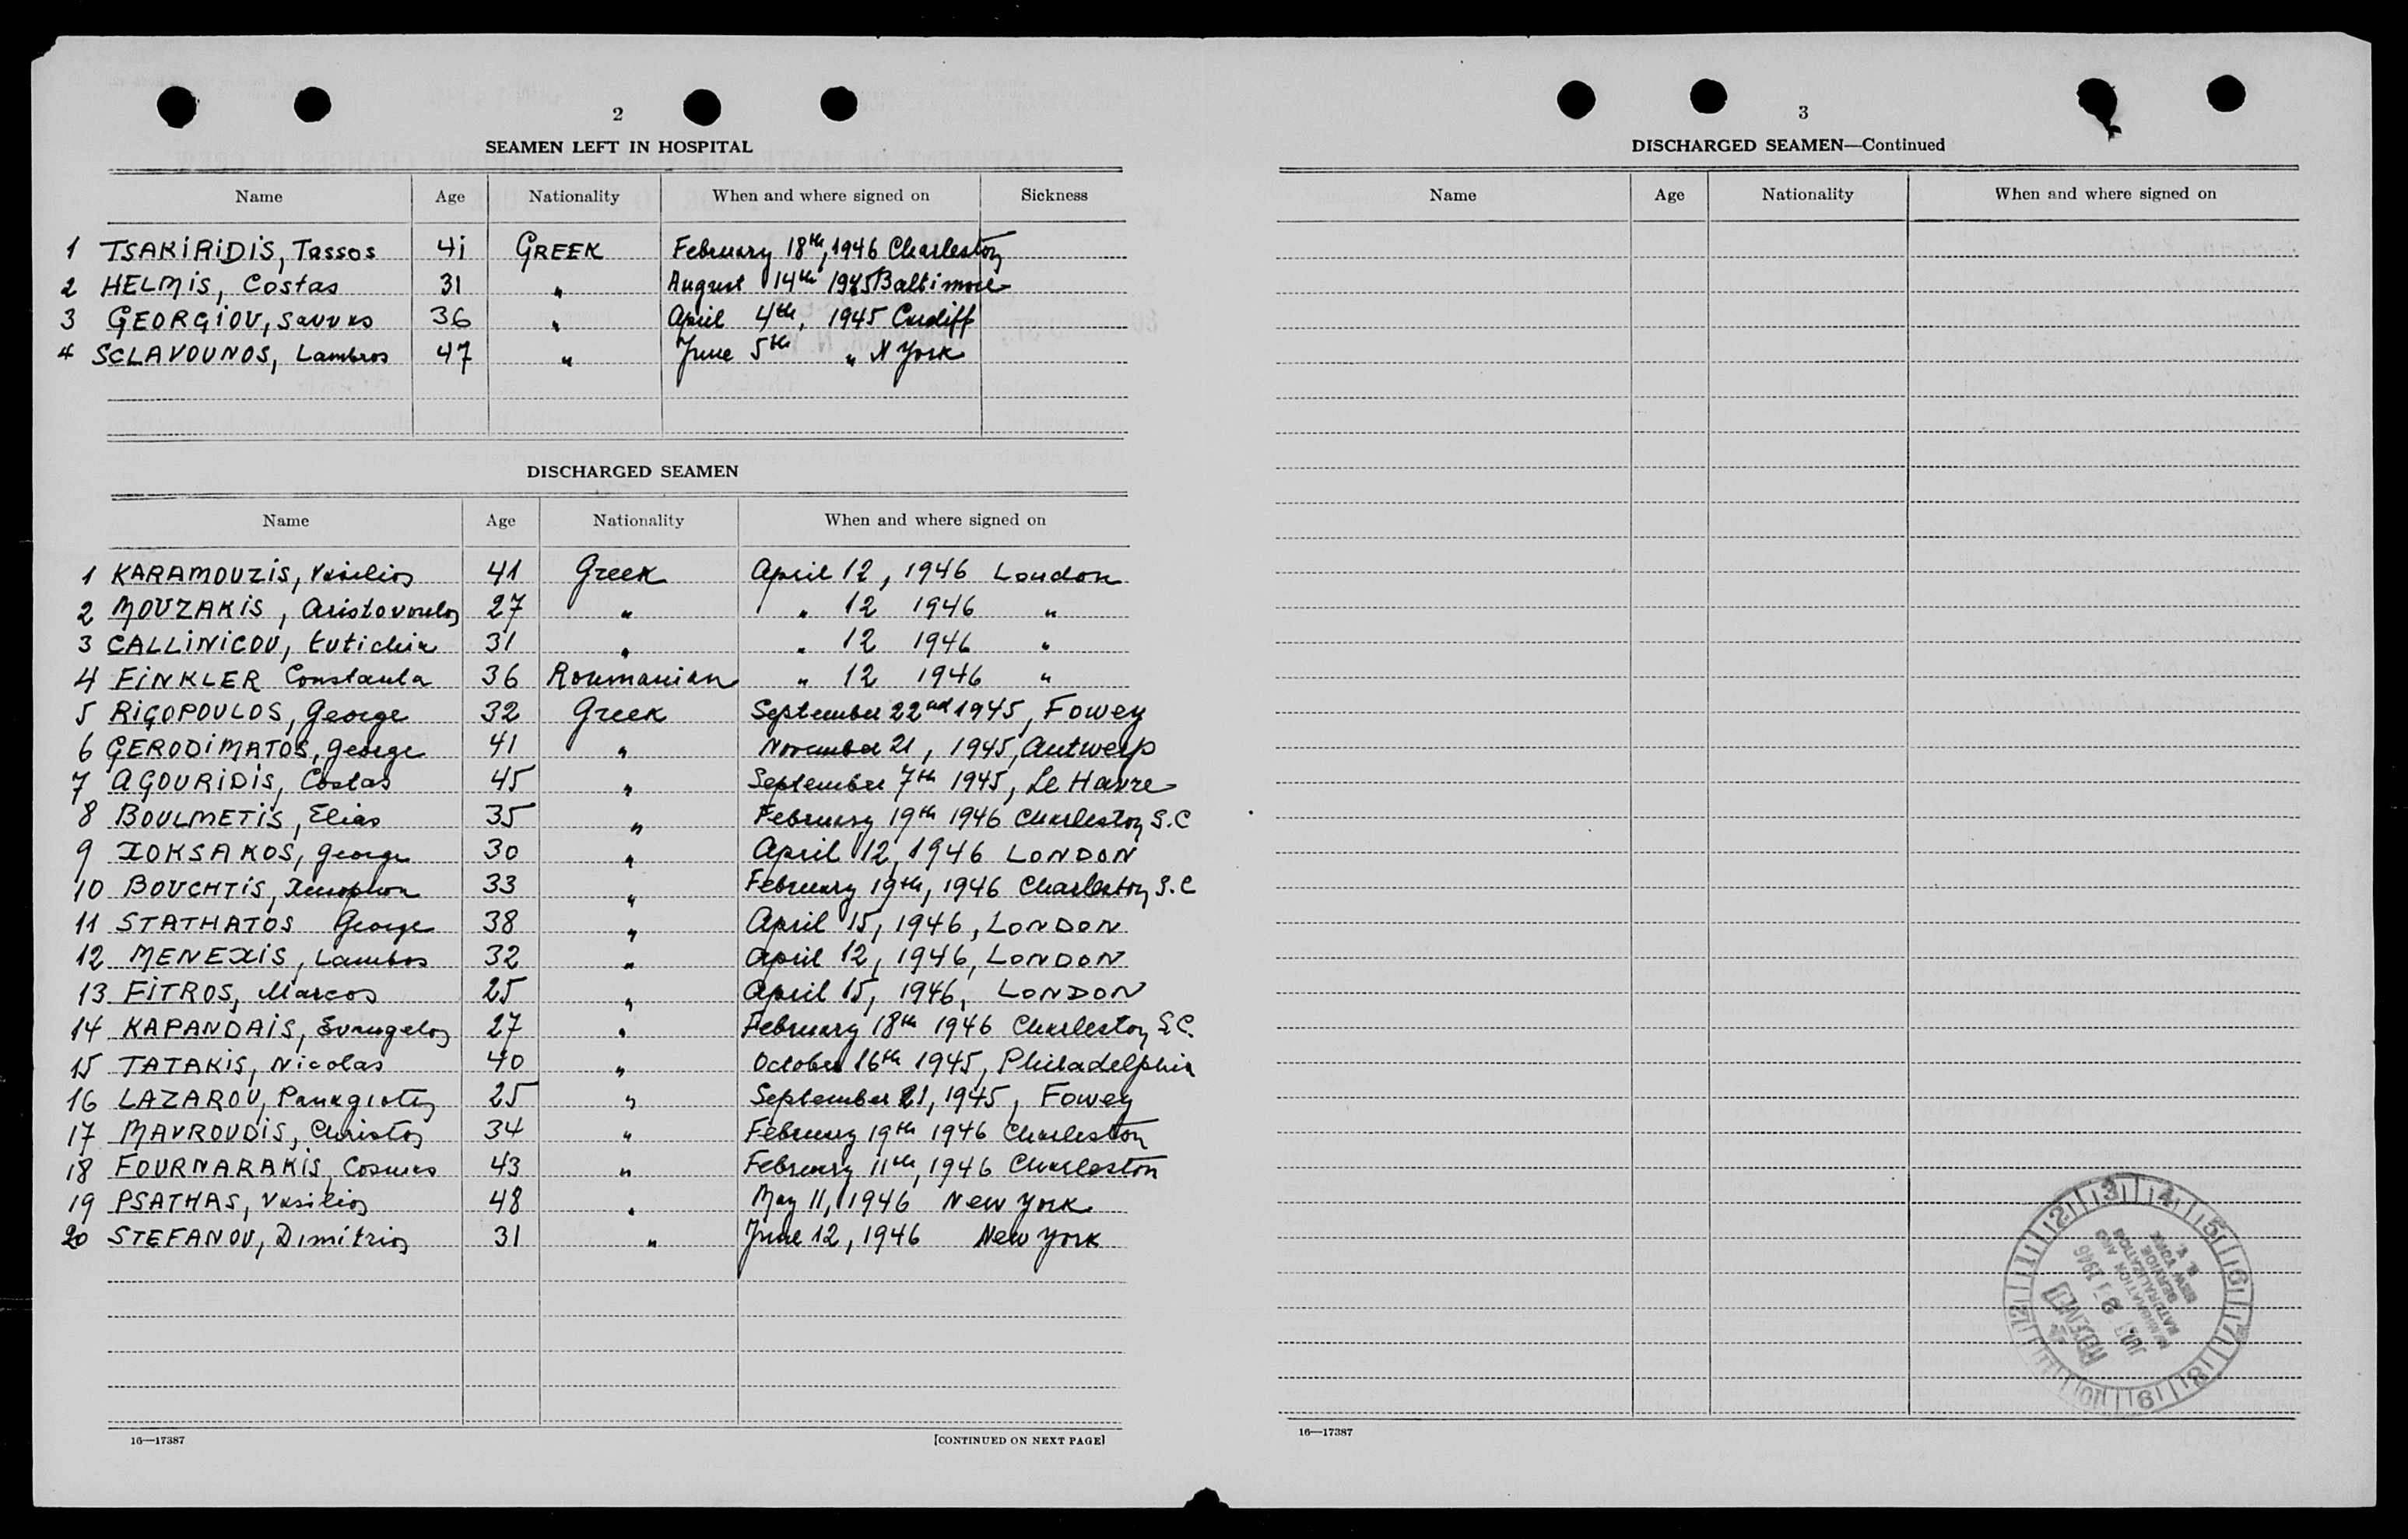 2
SEAMEN LEFT IN HOSPITAL
Name Age Nationality When and where signed on Sickness
1 TSAKIRIDIS, Tassos 41 GREEK February 18th, 1946 Charleston
2 HELMIS, Costas 31 " August 14th 1945 Baltimore
3 GEORGIOU, Savvas 36 " April 4th, 1945 Cardiff
4 SCLAVOUNOS, Lambros 47 " June 5th " N York
DISCHARGED SEAMEN
Name Age Nationality When and where signed on
1 KARAMOUZIS, Vasilios 41 Greek April 12, 1946 London
2 MOUZAKIS, Aristovoulos 27 " " 12 1946 "
3 CALLINICOU, Eutichia 31 " " 12 1946 "
4 FINKLER Constanta 36 Roumanian " 12 1946 "
5 RIGOPOULOS, George 32 Greek September 22nd 1945, Fowey
6 GERODIMATOS, George 41 " November 21, 1945, Antwerp
7 AGOURIDIS, Costas 45 " September 7th 1945, Le Havre
8 BOULMETIS, Elias 35 " February 19th 1946 Charleston S.C
9 XOKSAKOS, George 30 " April 12, 1946 LONDON
10 BOUCHTIS, Xenophon 33 " February 19th, 1946 Charleston S.C
11 STATHATOS George 38 " April 15, 1946, LONDON
12 MENEXIS, Lambos 32 " April 12, 1946, LONDON
13 FITROS, Marcos 25 " April 15, 1946, LONDON
14 KAPANDAIS, Evangelos 27 " February 18th 1946 Charleston S.C.
15 TATAKIS, Nicolas 40 " October 16th 1945, Philadelphia
16 LAZAROU, Panagiotis 25 " September 21, 1945, Fowey
17 MAVROUDIS, Christos 34 " February 19th 1946 Charleston
18 FOURNARAKIS, Cosmas 43 " February 11th, 1946 Charleston
19 PSATHAS, Vasilios 48 " May 11, 1946 New York
20 STEFANOU, Dimitrios 31 " June 12, 1946 New York
16—17387 [CONTINUED ON NEXT PAGE]
3
DISCHARGED SEAMEN—Continued
Name Age Nationality When and where signed on
12 1 2 3 4 5 6 7 8 9 10 11
RECEIVED
1946
IMMIGRATION AND
NATURALIZATION
SERVICE
NEW YORK
N. Y.
16—17387